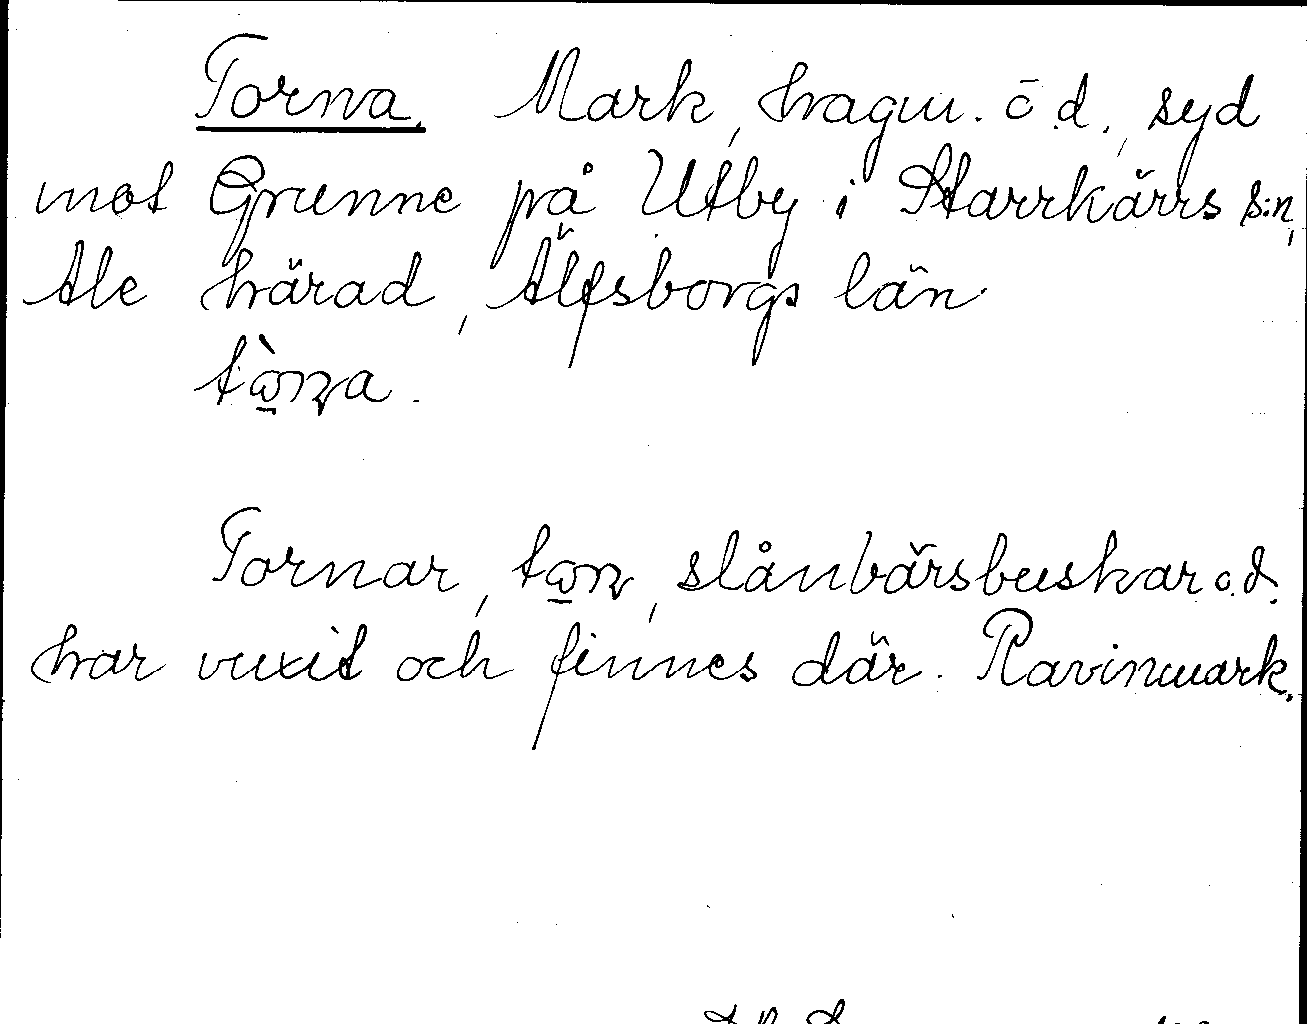 Torna. Mark, hagm. o.d., syd
mot Grunne på Utby i Starrkärrs s:n,
Ale härad, Älfsborgs län
tòṉa.

Tornar, toṉ, slånbärsbuskar o.d.
har vuxit och finnes där. Ravinmark.